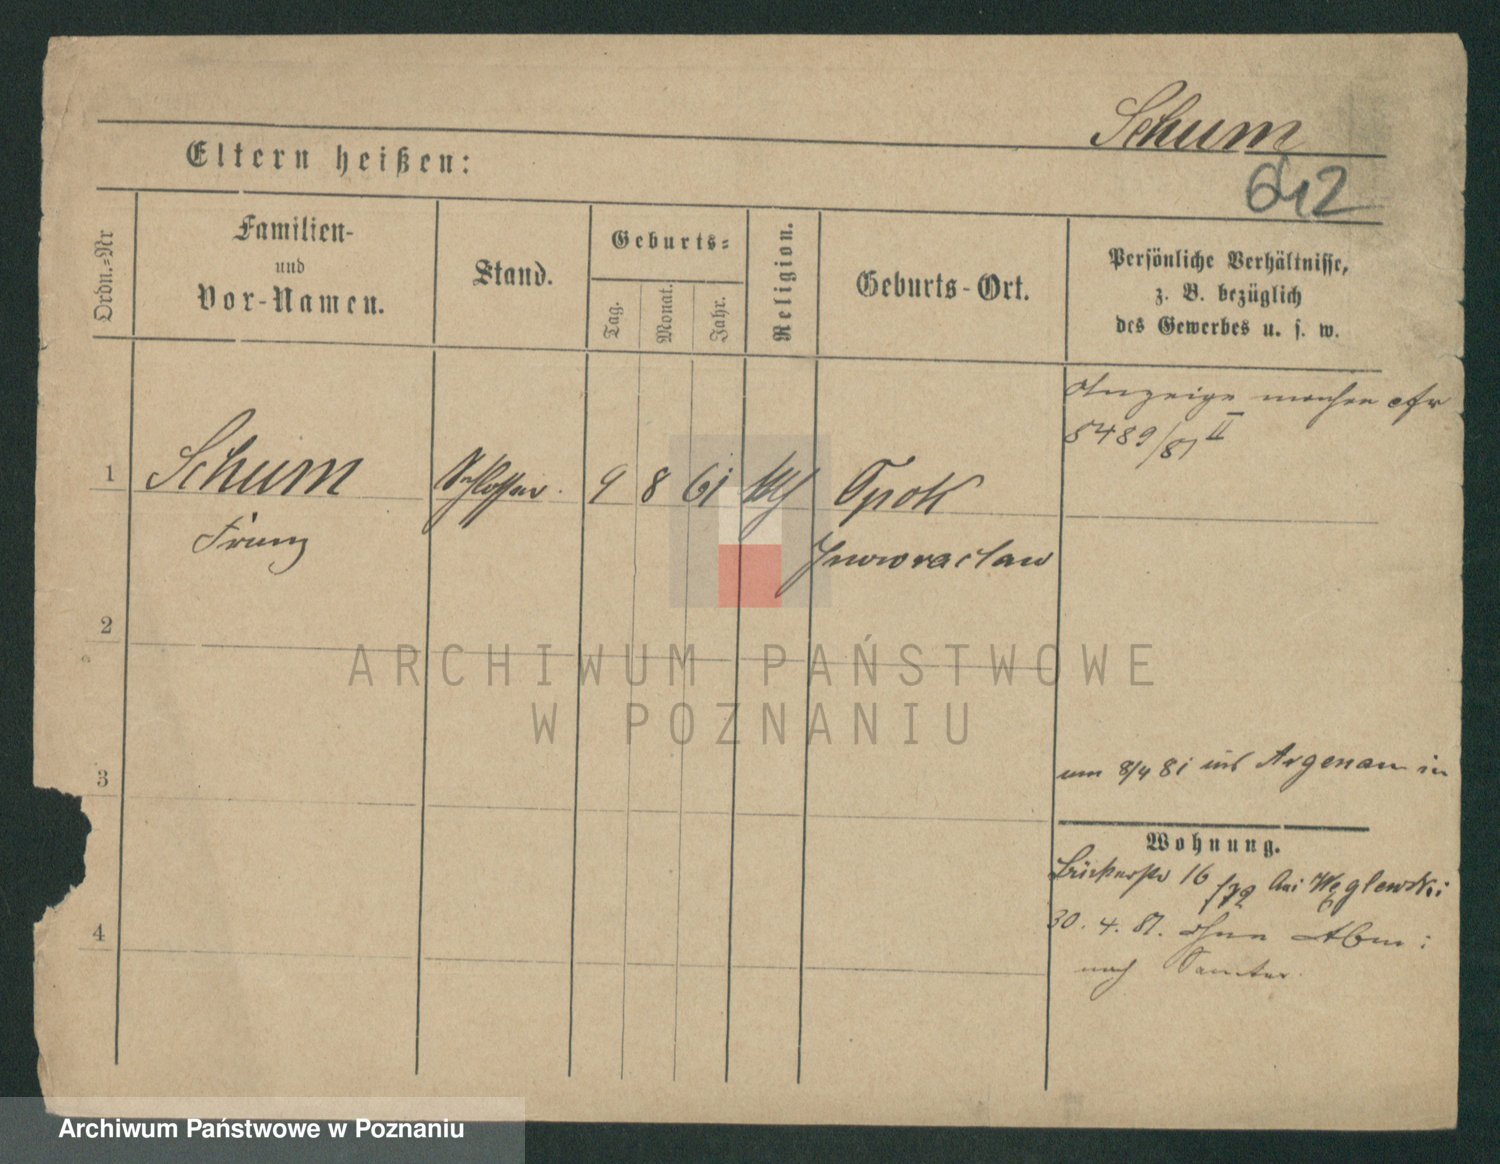 Schum
642
Eltern heißen:
Ordn.=Nr
Familien-
und
Vor-Namen.
Stand.
Geburts=
Tag.
Monat.
Jahr.
Religion.
Geburts-Ort.
Persönliche Verhältnisse,
z. B. bezüglich
des Gewerbes u. s. w.
Anzeige machen cfr
5489/81 II
1
Schum
Schlosser.
9
8
61
Spok
Franz
Inowraclaw
2
ARCHIWUM PAŃSTWOWE
W POZNANIU
3
am 8/4 81 aus Argenau in
Wohnung.
16 bei Węglewski
30. 4. 81. ohne Abm:
nach Samter.
4
Archiwum Państwowe w Poznaniu